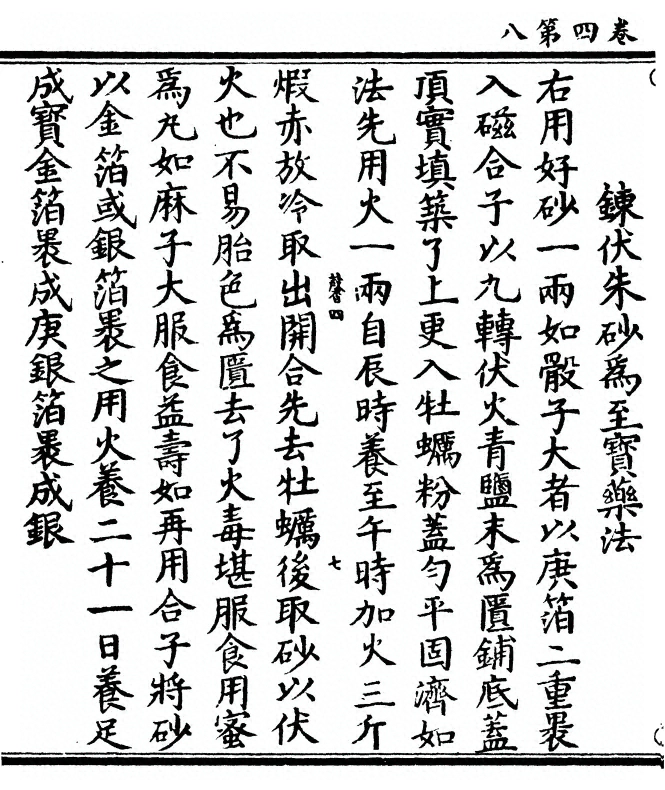 卷四第八
鍊伏朱砂爲至寶藥法
右用好砂一兩如骰子大者以庚箔二重裹
入磁合子以九轉伏火青鹽末爲匱鋪底蓋
頂實填築了上更入牡蠣粉蓋勻平固濟如
法先用火一兩自辰時養至午時加火三斤
馨四
七
煆赤放冷取出開合先去牡蠣後取砂以伏
火也不易胎色爲匱去了火毒堪服食用蜜
爲丸如麻子大服食益壽如再用合子將砂
以金箔或銀箔裹之用火養二十一日養足
成寶金箔裹成庚銀箔裹成銀